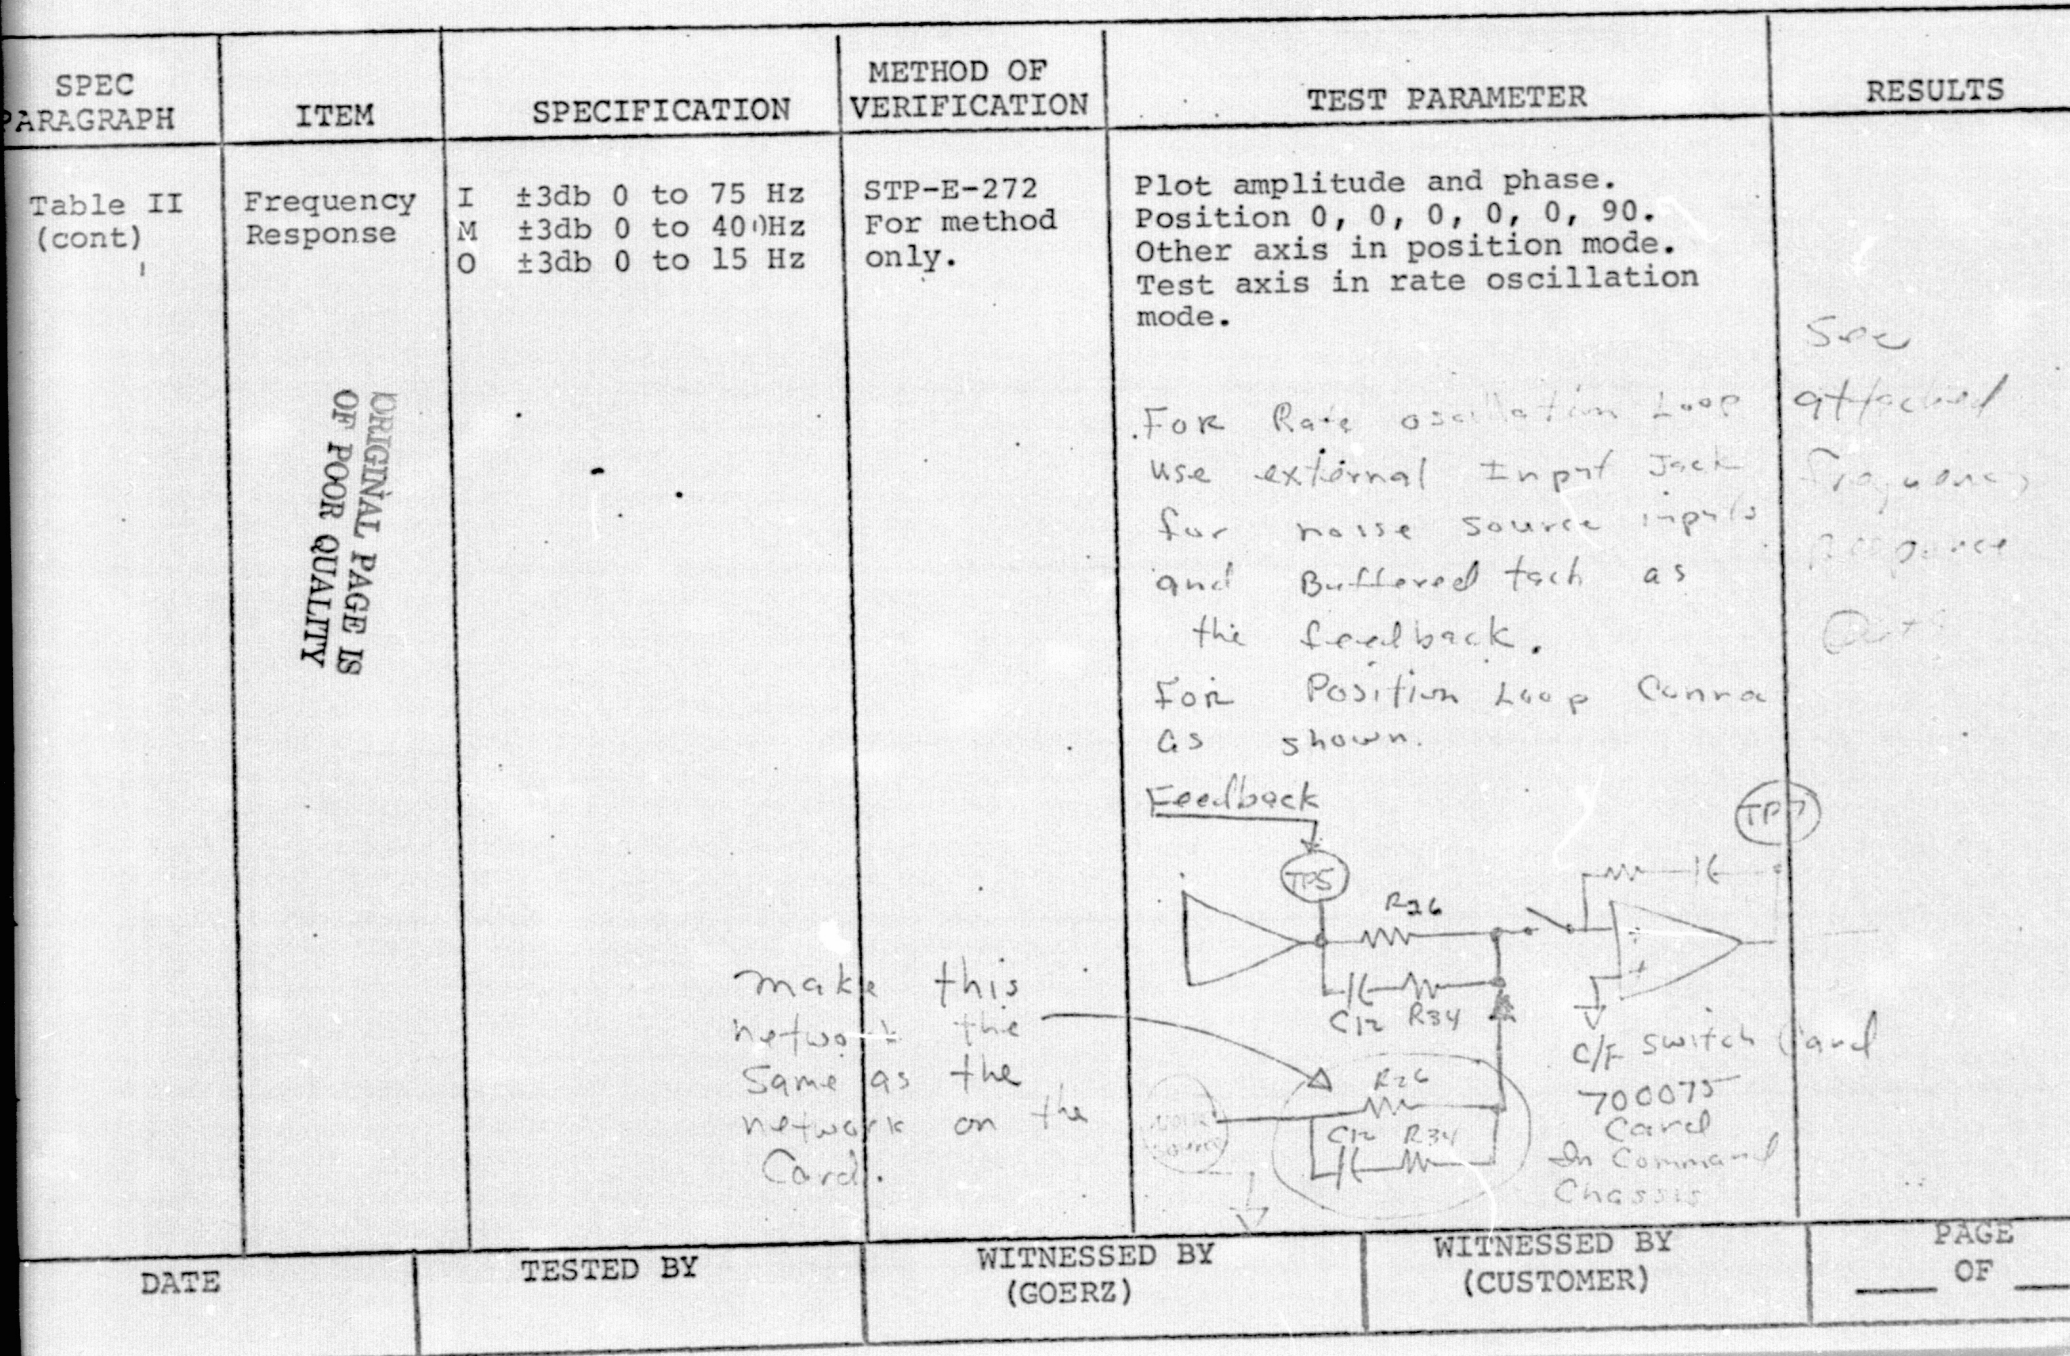 SPEC
PARAGRAPH
ITEM
SPECIFICATION
METHOD OF
VERIFICATION
TEST PARAMETER
RESULTS
Table II
(cont)
Frequency
Response
I ±3db 0 to 75 Hz
M ±3db 0 to 40 Hz
O ±3db 0 to 15 Hz
STP-E-272
For method
only.
Plot amplitude and phase.
Position 0, 0, 0, 0, 0, 90.
Other axis in position mode.
Test axis in rate oscillation
mode.
ORIGINAL PAGE IS
OF POOR QUALITY
For Rate oscillation Loop
use external Input Jack
for noise source inputs
and Buffered tach as
the feedback.
For Position Loop
as shown.
See
attached
frequency
Feedback
TP5
TP7
R26
C12 R34
make this
network the
Same as the
network on the
Card.
R26
C12 R34
noise
source
C/F Switch Card
700075
Card
In Command
Chassis
DATE
TESTED BY
WITNESSED BY
(GOERZ)
WITNESSED BY
(CUSTOMER)
PAGE
OF